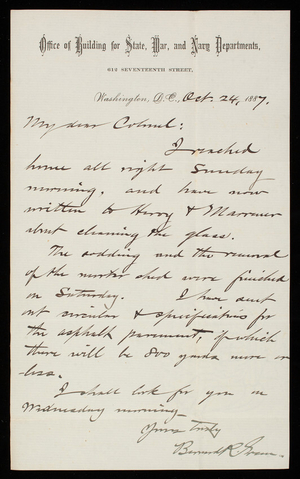 Office of Building for State, War, and Navy Departments,
613 SEVENTEENTH STREET,
Washington, D.C., Oct. 24, 1887.
My dear Colonel:
I reached
home all right Sunday
morning, and have now
written to Henry &
about cleaning the glass.
The sodding and the removal
of the mortar shed were finished
on Saturday. I have sent
out circular & specifications for
the asphalt pavement, of which
there will be 800 yards more or
less.
I shall look for you on
Wednesday morning—
Yours truly
Bernard R. Green.